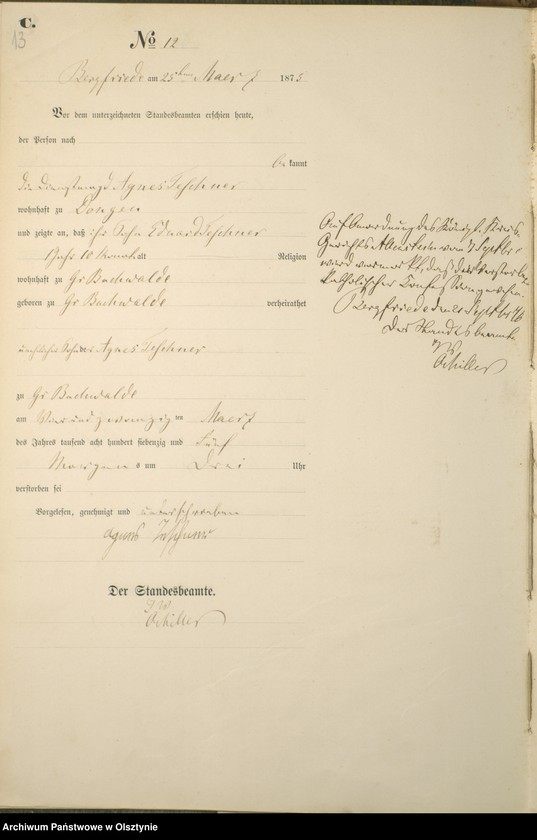 C.
13
No 12
Bergfriede am 25ten Maerz 1875
Vor dem unterzeichneten Standesbeamten erschien heute,
der Person nach
be kannt
die Dienstmagd Agnes Teschner
wohnhaft zu Longen
und zeigte an, daß ihr Sohn Eduard Teschner
1 Jahr 10 Monat alt Religion
wohnhaft zu Gr Buchwalde
geboren zu Gr Buchwalde verheirathet
unehelicher Sohn der Agnes Teschner
zu Gr Buchwalde
am Vier und zwanzig ten Maerz
des Jahres tausend acht hundert siebenzig und fünf
Morgens um Drei Uhr
verstorben sei
Vorgelesen, genehmigt und unterschrieben
Agnes Teschner
Der Standesbeamte.
Schiller
Auf Anordnung des Königl. Kreis
Gerichts Allenstein vom 7 Septbr
wird vermerkt, daß der Verstorbene
katholischer Confession gewesen.
Bergfriede den Septbr 76
Der Standesbeamte
Schiller
Archiwum Państwowe w Olsztynie